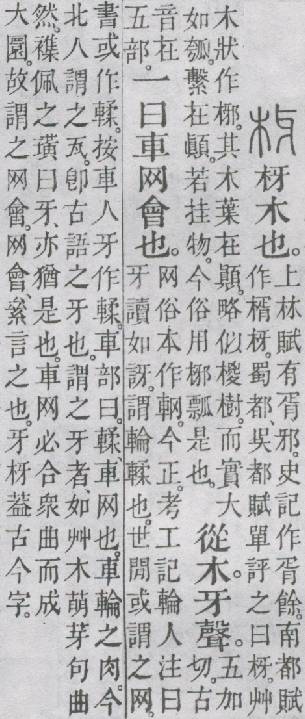 枒 枒木也。上林賦有胥邪。史記作胥餘。南都賦
作楈枒。蜀都、吳都賦單評之曰枒。艸
木狀作梛。其木葉在顚。略佀椶樹。而實大
如瓠。繫在顚。若挂物。今俗用梛瓢是也。
從木。牙聲。五加
切。古
音在
五部。
一曰車网會也。网俗本作輞。今正。考工記輪人注曰
牙讀如訝。謂輪輮也。世閒或謂之网。
書或作輮。按車人牙作輮。車部曰。輮、車网也。車輪之肉。今
北人謂之瓦。卽古語之牙也。謂之牙者、如艸木萌芽句曲
然。襍佩之璜曰牙。亦猶是也。車网必合衆曲而成
大圜。故謂之网會。网會、絫言之也。牙枒葢古今字。